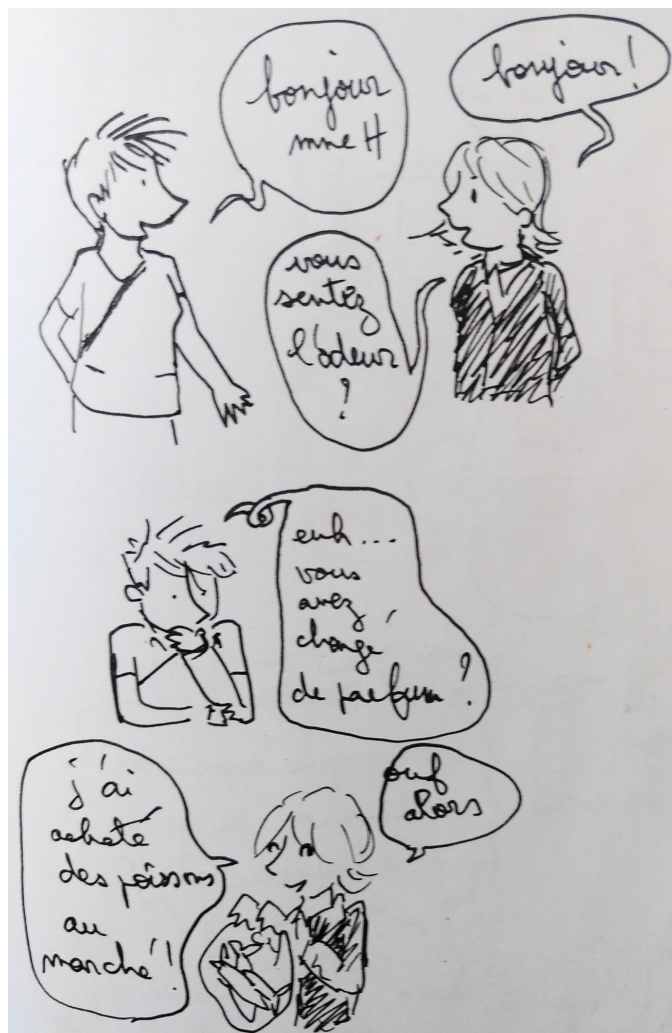 bonjour
mme H
bonjour !
vous
sentez
l'odeur
?
euh...
vous
avez
changé
de parfum ?
j'ai
acheté
des poissons
au
marché !
ouf
alors